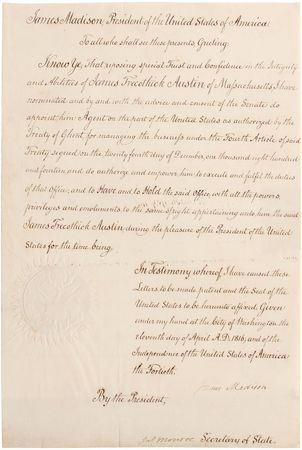 James Madison, President of the United States of America
To all who shall see these presents, Greeting:
Know Ye, That reposing special Trust and Confidence in the Integrity
and Abilities of James Fredthick Austin of Massachusetts I have
nominated and by and with the advice and consent of the Senate do
appoint him Agent on the part of the United States as authorized by the
Treaty of Ghent for managing the business under the Fourth Article of said
Treaty signed on the twenty fourth day of December, one thousand eight hundred
and fourteen and do authorize and empower him to execute and fulfil the duties
of that Office; and to Have and to Hold the said Office, with all the powers,
privileges and emoluments to the same of right appertaining unto him the said
James Fredthick Austin, during the pleasure of the President of the United
States for the time being.
In Testimony whereof I have caused these
Letters to be made patent and the Seal of the
United States to be hereunto affixed. Given
under my hand at the City of Washington the
eleventh day of April A.D. 1816; and of the
Independence of the United States of America
the Fortieth.
James Madison
By the President,
Jas Monroe Secretary of State.